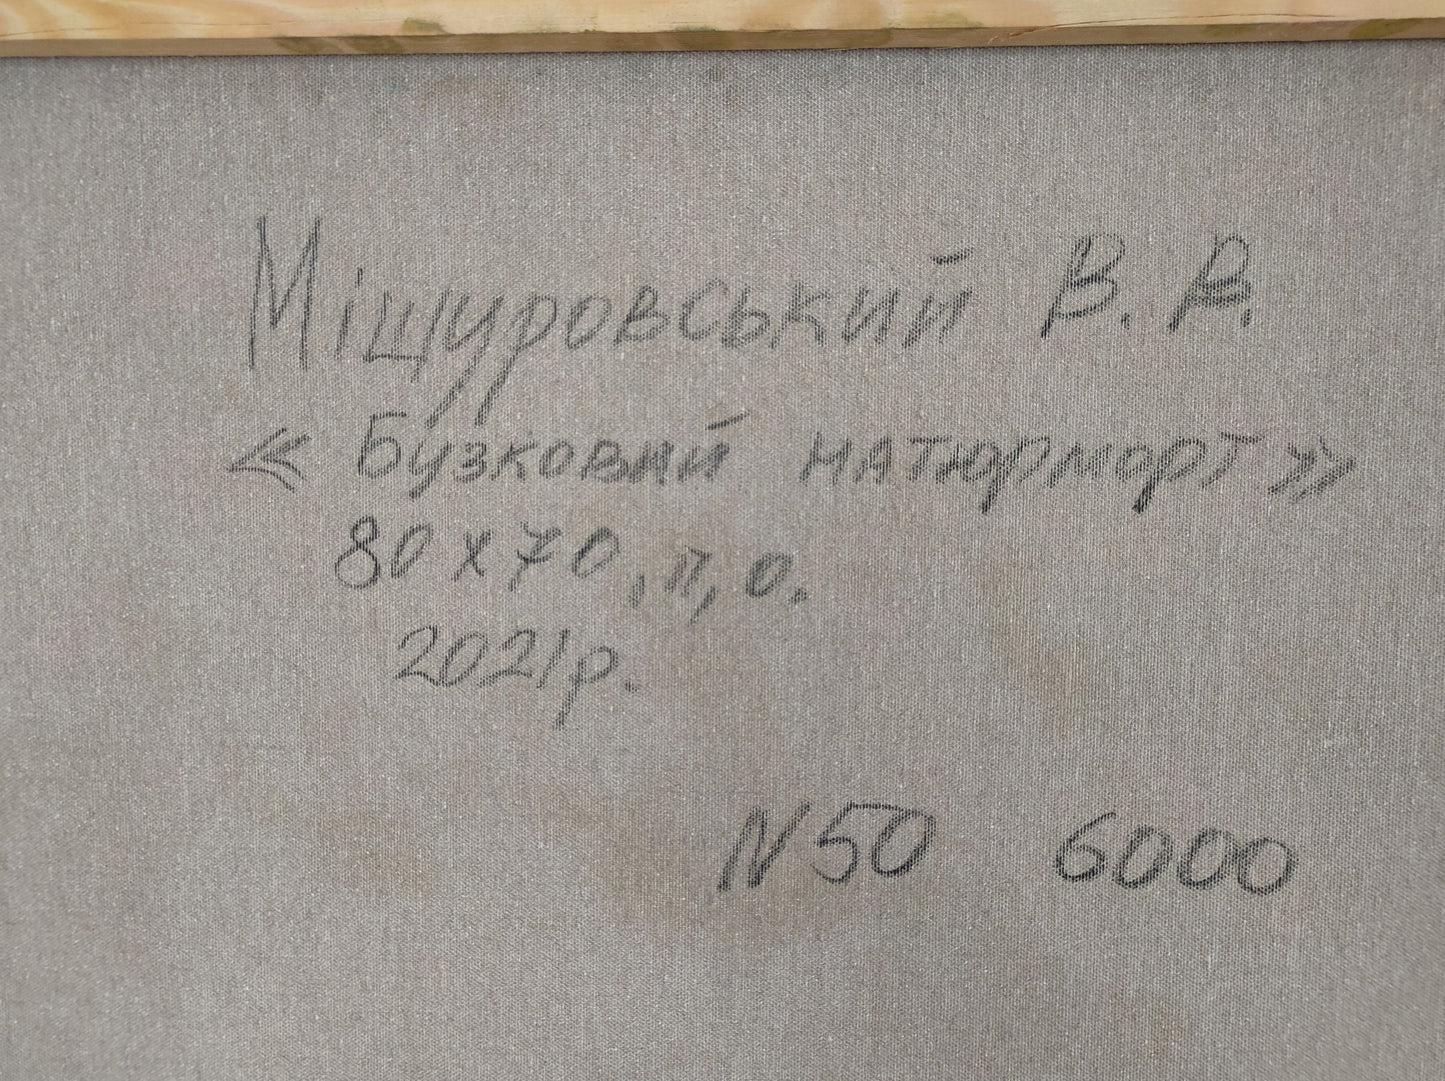 Міщуровський В. В.
« Бузковий натюрморт »
80 х 70, п, о.
2021р.
N 50 6000